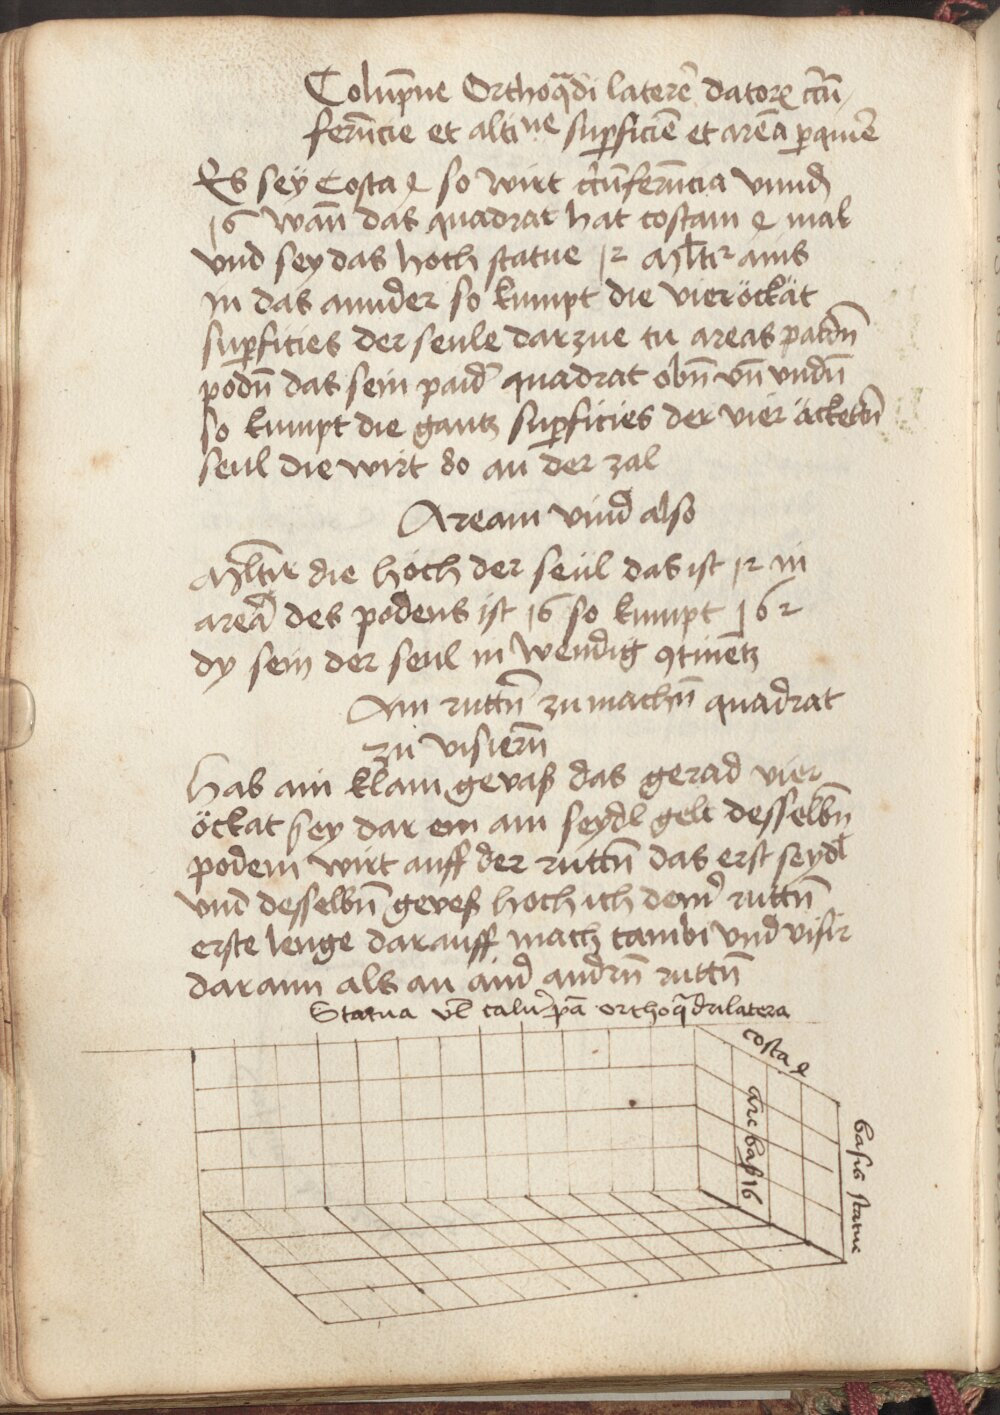 Colūpne Orthoqdi laterē datorꝝ cc̄ū
fern̄cie et altine suꝑficiē et areā ꝑquirē
Es sey Costa 4 so wirt cc̄ūfern̄cia vnnd
16 wan̄ das quadrat hat costam 4 mal
vnd sey das hoch statue 12 Ml̄tir ains
in das annder so kumpt die vieröckät
suꝑficies der seule darzue tu areas paidn̄
podn̄ das sein paid quadrat obn̄ vn̄ vndn̄
so kumpt die gantz suꝑficies der vier äcketn̄
seul die wirt do an der zal
Aream vind also
Ml̄tir die höch der seül das ist 12 in
area des podens ist 16 so kumpt 162
dy sein der seul in wendig ꝯtinentz
Ain ruttn̄ zu machn̄ quadrat
zu visiern̄
Hab ain klain gevaß das gerad vier
öckat sey dar em ain seydl gelt desselbn̄
podem wirt auff der ruttn̄ das erst seydl
vnd desselbn̄ geveß hoch ich dem ruttn̄
erste lenge darauff mach cambi vnd visir
darann als an aind andrn̄ ruttn̄
Statua vl̄ calūpā orthoqdrilatera
costa 4
are bas 16
basis statue